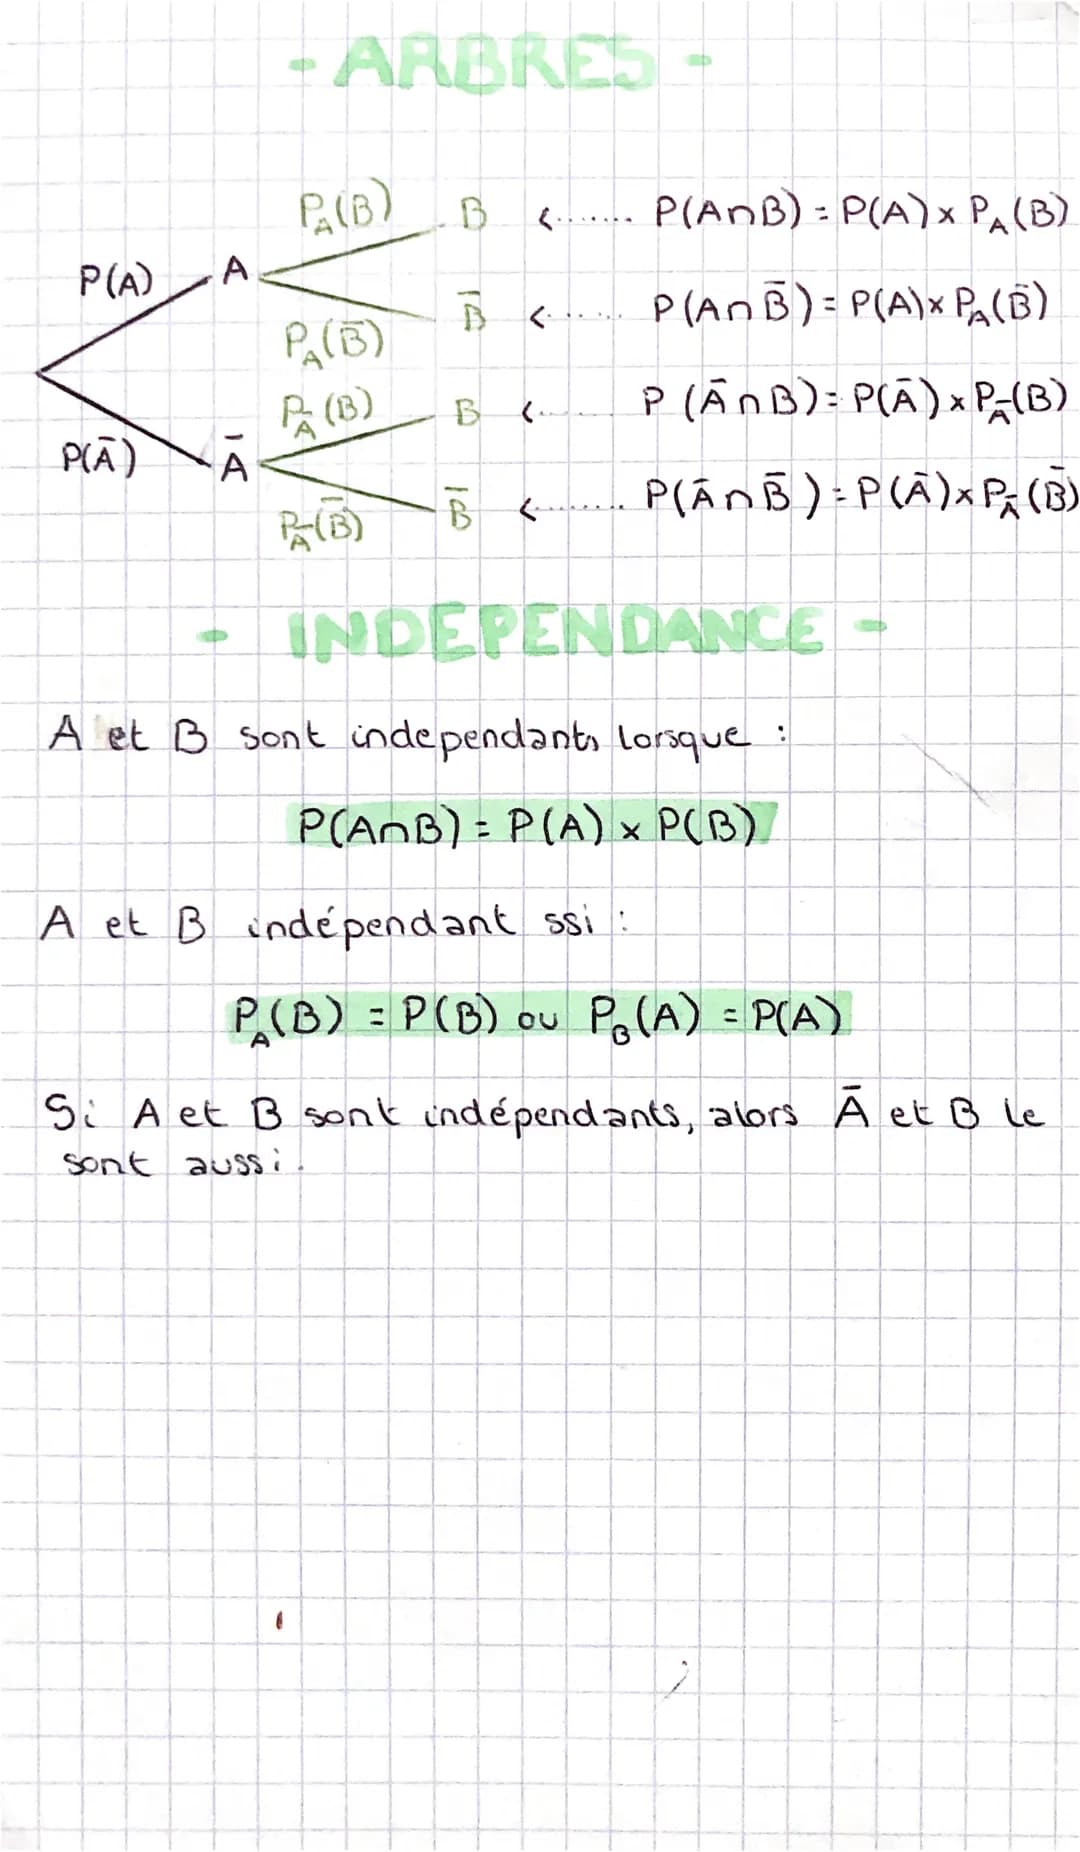 - ARBRES -
P_A(B) B <....... P(A∩B) = P(A) × P_A(B)
P(A) A
B̄ <...... P(A∩B̄) = P(A) × P_A(B̄)
P_A(B̄)
P_Ā(B) B <...... P(Ā∩B) = P(Ā) × P_Ā(B)
P(Ā) Ā
P_Ā(B̄) B̄ <....... P(Ā∩B̄) = P(Ā) × P_Ā(B̄)
- INDEPENDANCE -
A et B sont independants lorsque :
P(A∩B) = P(A) × P(B)
A et B indépendant ssi :
P_A(B) = P(B) ou P_B(A) = P(A)
Si A et B sont indépendants, alors Ā et B le
sont aussi.